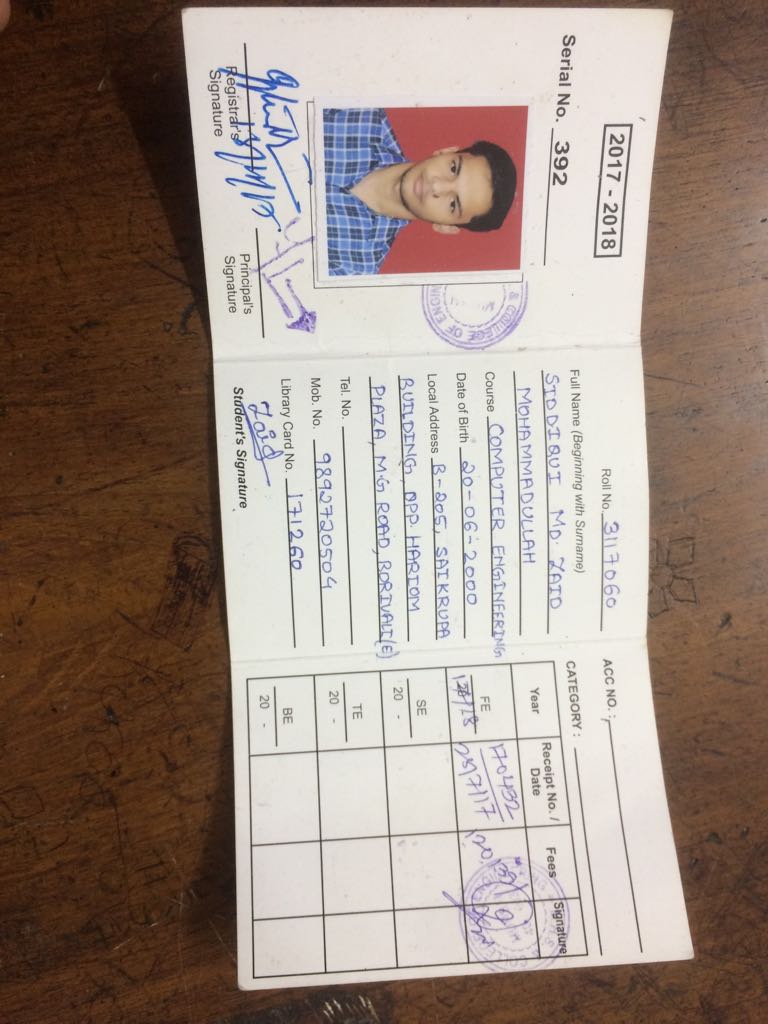 2017 - 2018
Serial No. 392
& COLLEGE OF ENGIN
Registrar's
Signature
Principal's
Signature
Roll No. 3117060
Full Name (Beginning with Surname)
SIDDIQUI MD. ZAID
MOHAMMADULLAH
Course COMPUTER ENGINEERING
Date of Birth 20-06-2000
Local Address B-205, SAIKRUPA
BUILDING, OPP. HARIOM
PLAZA, M.G ROAD, BORIVALI(E)
Tel. No.
Mob. No. 9892720504
Library Card No. 171260
Zaid
Student's Signature
ACC NO. :
CATEGORY :
Year Receipt No. / Date Fees Signature
FE 170432
25/7/17
SE
20 -
TE
20 -
BE
20 -